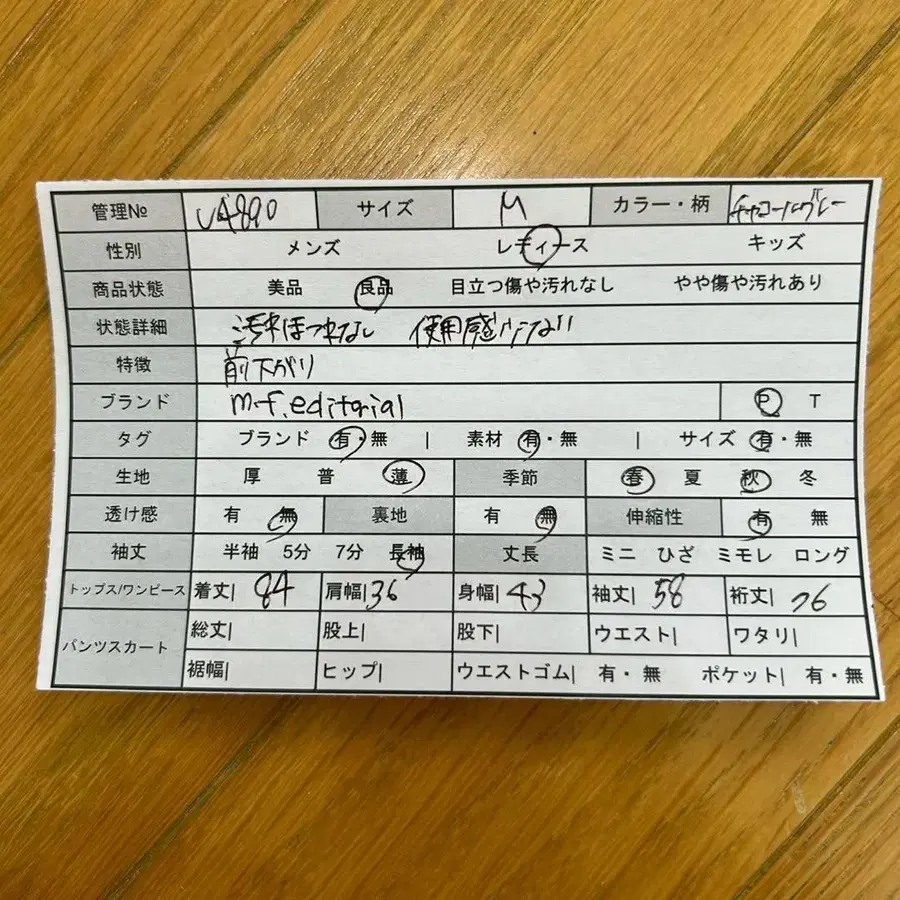 管理№ U4890 サイズ M カラー・柄 チャコールグレー
性別 メンズ レディース キッズ
商品状態 美品 良品 目立つ傷や汚れなし やや傷や汚れあり
状態詳細 汚れほつれなし 使用感少ない
特徴 前下がり
ブランド m.f.editorial P T
タグ ブランド 有・無 | 素材 有・無 | サイズ 有・無
生地 厚 普 薄 季節 春 夏 秋 冬
透け感 有 無 裏地 有 無 伸縮性 有 無
袖丈 半袖 5分 7分 長袖 丈長 ミニ ひざ ミモレ ロング
トップス/ワンピース 着丈| 84 肩幅| 36 身幅| 43 袖丈| 58 裄丈| 76
パンツスカート 総丈| 股上| 股下| ウエスト| ワタリ|
裾幅| ヒップ| ウエストゴム| 有・無 ポケット| 有・無